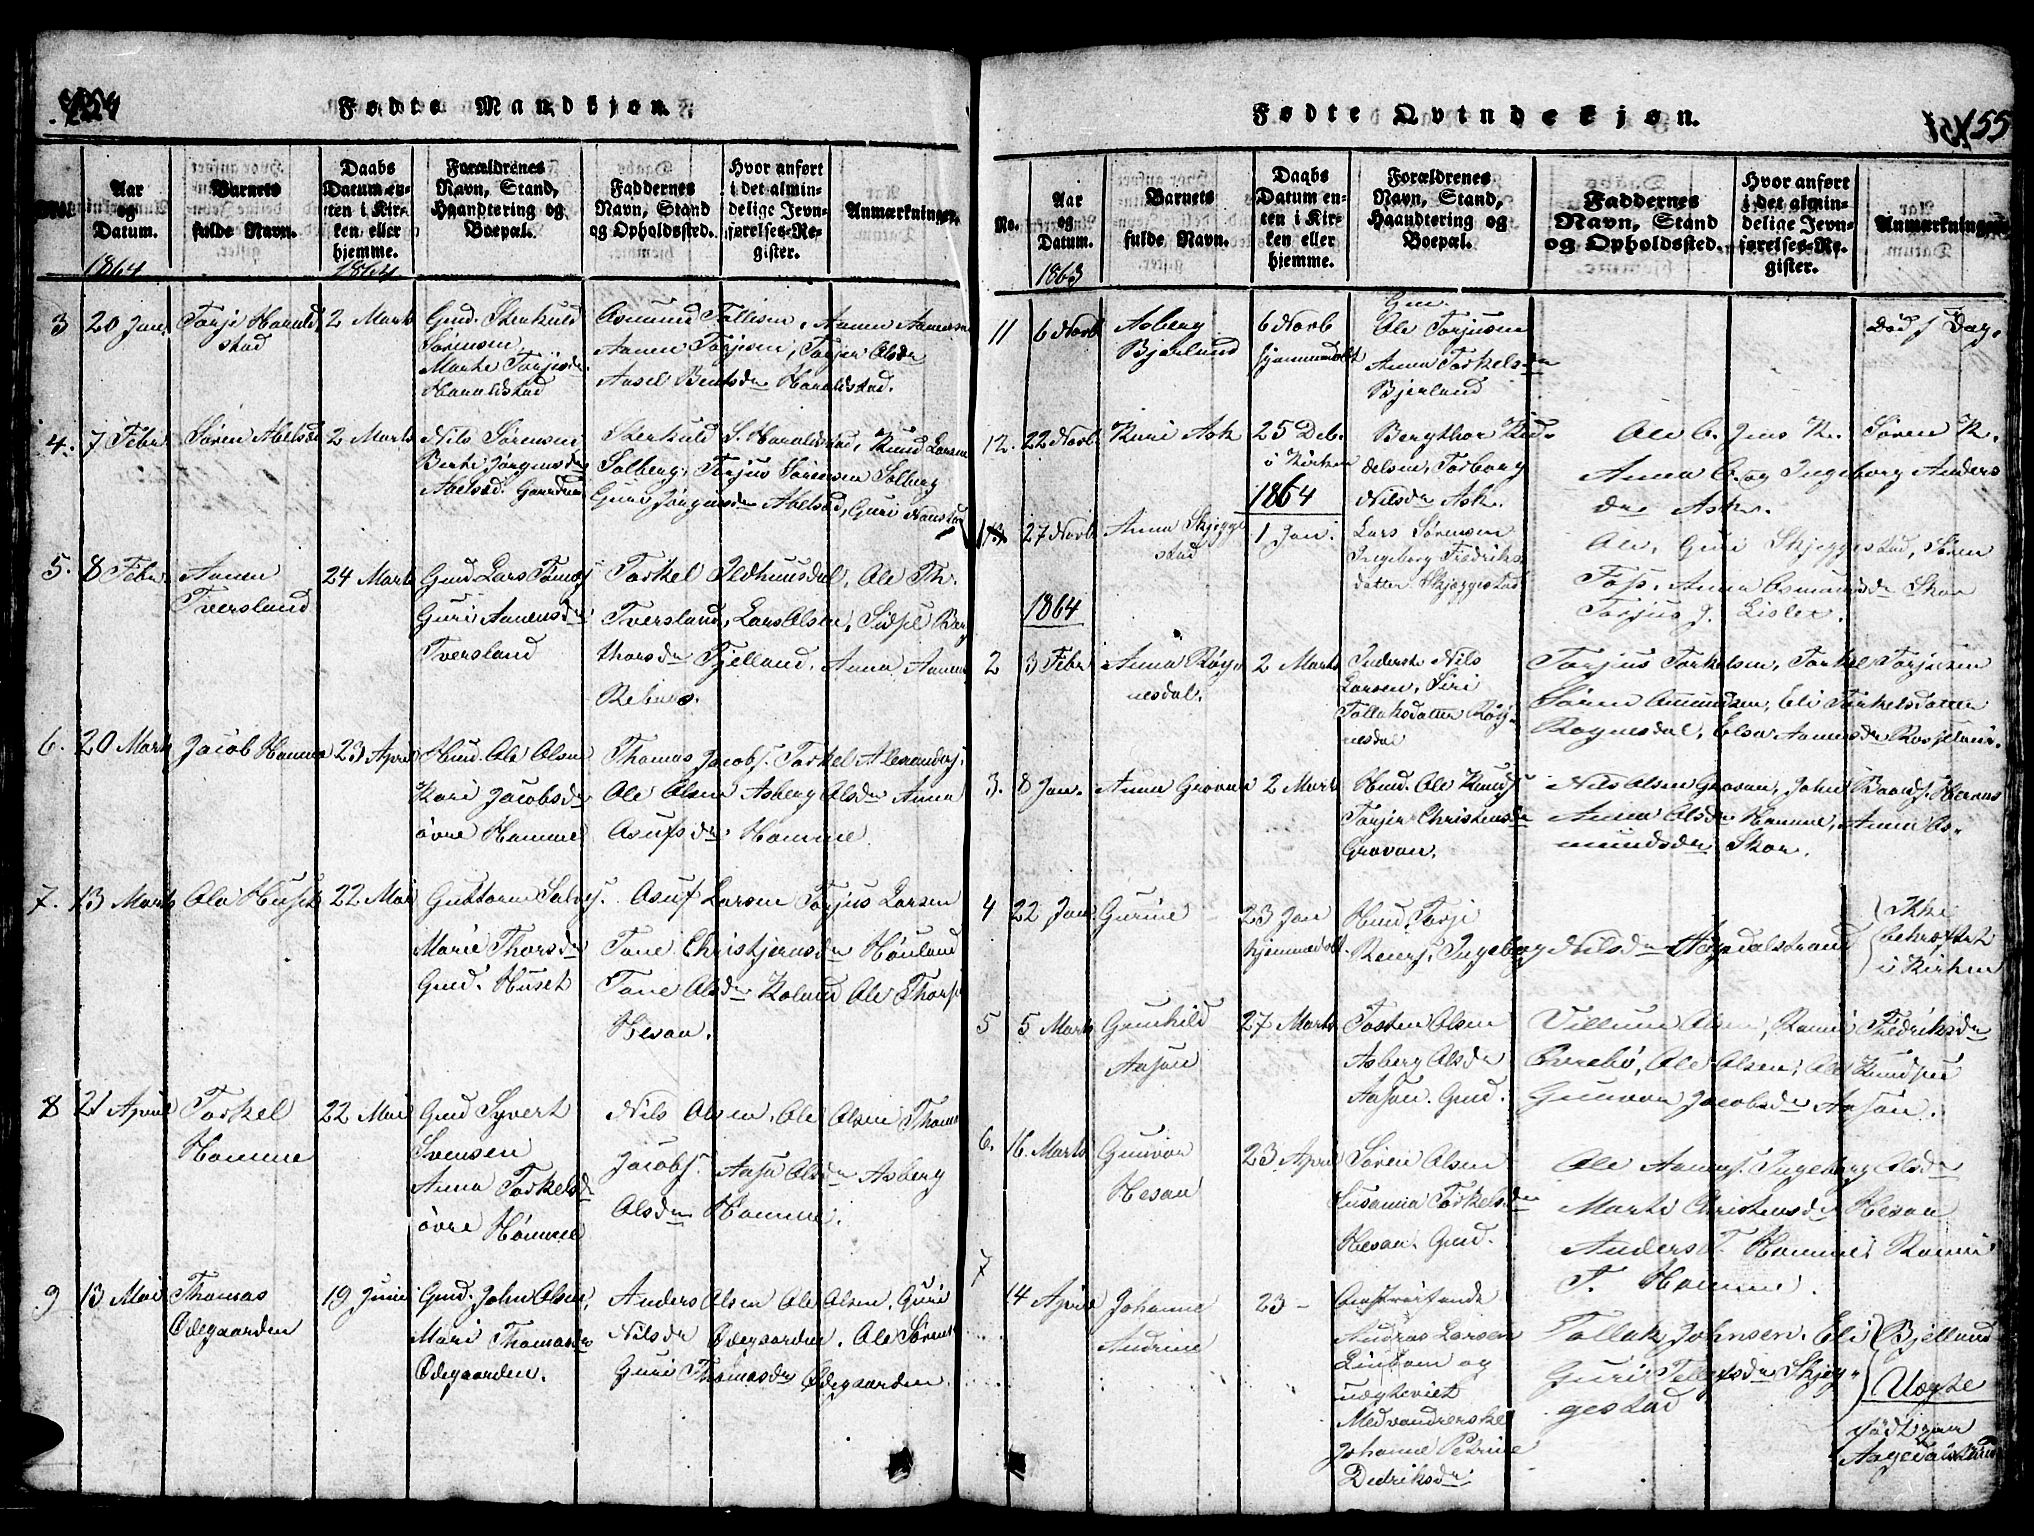 154
Fødte Mandkjøn.
No.
Aar og Datum.
Barnets fulde Navn.
Daabs Datum enten i Kirken eller hjemme.
Forældrenes Navn, Stand, Haandtering og Boepæl.
Faddernes Navn, Stand og Opholdssted.
Hvor anført i det almindelige Jevnførelses-Register.
Anmærkninger.
1864
1864
3 20 Jan. Torje Harald
stad
2 Marts
Gmd.
Sørensen
Marte Torjesdr
Haraldstad
Osmund Tallksen, Aanen Aanensen
Aanen Torjesen, Torjer Olsdr
Aasel Bentsdr Haraldstad.
4. 7 Febr. Søren Abelsæd 2 Marts
Nils Sørensen
Berte Jørgensdr
Abelsæd. Gaardm.
S. Haraldstad, Knud Larsen
Solberg, Torjus Sørensen Solberg
Guri Jørgensdr Abelsæd, Guri Naustad
5. 8 Febr. Aanen
Tversland
24 Marts
Gmd Lars Tomas
Guri Aanensdr
Tversland
Torkel Ildhuusdal, Ole Th.
Tversland, Lars Olsen, Sidsel Berg
thorsdr Fjelland, Anna Aanens
6. 20 Marts Jacob Homme 23 April
Huusd. Ole Olsen
Kari Jacobsdr
øvre Homme
Thomas Jacobs. Torkel Alexanders.
Ole Olsen Asberg Olsdr Anna
Asufsdr Homme
7. 13 Marts Ole Huset 22 Mai
Guttorm Salves.
Marie Thorsdr
Gmd. Huset
Asuf Larsen Torjus Larsen
Tone Christjernsdr Hønland
Tone Olsdr Roland Ole Thors
Hesan.
8 21 April Torkel
Homme
22 Mai
Gmd Syvert
Svensen
Anna Torkelsdr
øvre Homme
Nils Olsen, Ole Olsen Thomas
Jacobs. Aase Olsdr Asberg
Olsdr Homme.
9 13 Mai Thomas
Ødegaarden
19 Junii
Gmd. John Olsen,
Mari Thomasdr
Ødegaarden.
Anders Olsen Ole Olsen, Guri
Nilsdr Ødegaarden. Ole Sørens
Guri Thomasdr Ødegaarden.
155
Fødte Qvindekjøn.
No.
Aar og Datum.
Barnets fulde Navn.
Daabs Datum enten i Kirken eller hjemme.
Forældrenes Navn, Stand, Haandtering og Boepæl.
Faddernes Navn, Stand og Opholdssted.
Hvor anført i det almindelige Jevnførelses-Register.
Anmærkninger.
1863
11 6 Novb Asberg
Bjerlund
6 Novb
hjemmedøbt
Gm.
Ole Torjusen
Anna Torkelsdr
Bjerlund
død s. Dag.
12. 22 Novb. Kari Ask 25 Deb.
i Kirken
Bergthor Knu-
delsen, Torborg
Nilsdr Ask.
Ole B. Jens K. Søren K.
Anna B. og Ingeborg Anders
dr Ask.
1864
13 27 Novb Anna Skjegge
stad
1 Jan.
Lars Sørensen
Ingeborg Fredriks
datter Skjeggestad
Ole, Guri Skjeggestad, Søren
Anna Osmundsdr Skor
Torjus J. Lislev.
1864
2 3 Febr Anna Røy-
nesdal.
2 Marts
Inderste Nils
Larsen, Siri
Tallaksdatter Røy-
nesdal
Torjus Torkelsen, Torkel Torjusen
Søren Amundsen, Eli Torkelsdatter
Røynesdal, Elsa Aanensdr
3. 8 Jan. Anna Grovan 2 Marts
Huusd. Ole Knuds
Torjer Christensdr
Grovan.
Nils Olsen Grovan, John Baards.
Anna Olsdr Homme, Anna As-
mundsdr Skor.
4 22 Jan. Gurine
23 Jan
hjemmedøbt.
Huusd. Torje
Reiers. Ingeborg Nilsdr
Ikke
bekræftet
i Kirken
5 5 Marts Gunhild
Aasen
27 Marts
Tosten Olsen
Asberg Olsdr
Aasen. Gmd.
Villum Olsen, Ranni Fredriksdr
Overebø, Ole Olsen, Ole Knudsen
Gunvor Jacobsdr Aasen.
6. 16. Marts Gunvor
Hesan
23 April
Søren Olsen
Susanna Torkelsdr
Hesan, Gmd.
Ole Aanens. Ingeborg Olsdr
Marte Christensdr Hesan
Anders T. Homme, Ranni
T. Homme.
7
14 April Johanne
Andrine
23 –
Omstreifende
Andreas Larsen
Lindtom og
uægteviet
Medvandrerske
Johanne Petrine
Dedriksdr
Tallak Johnsen. Eli Bjelland
Guri Tellefsdr Skjeg-
gestad
Uægte
født paa